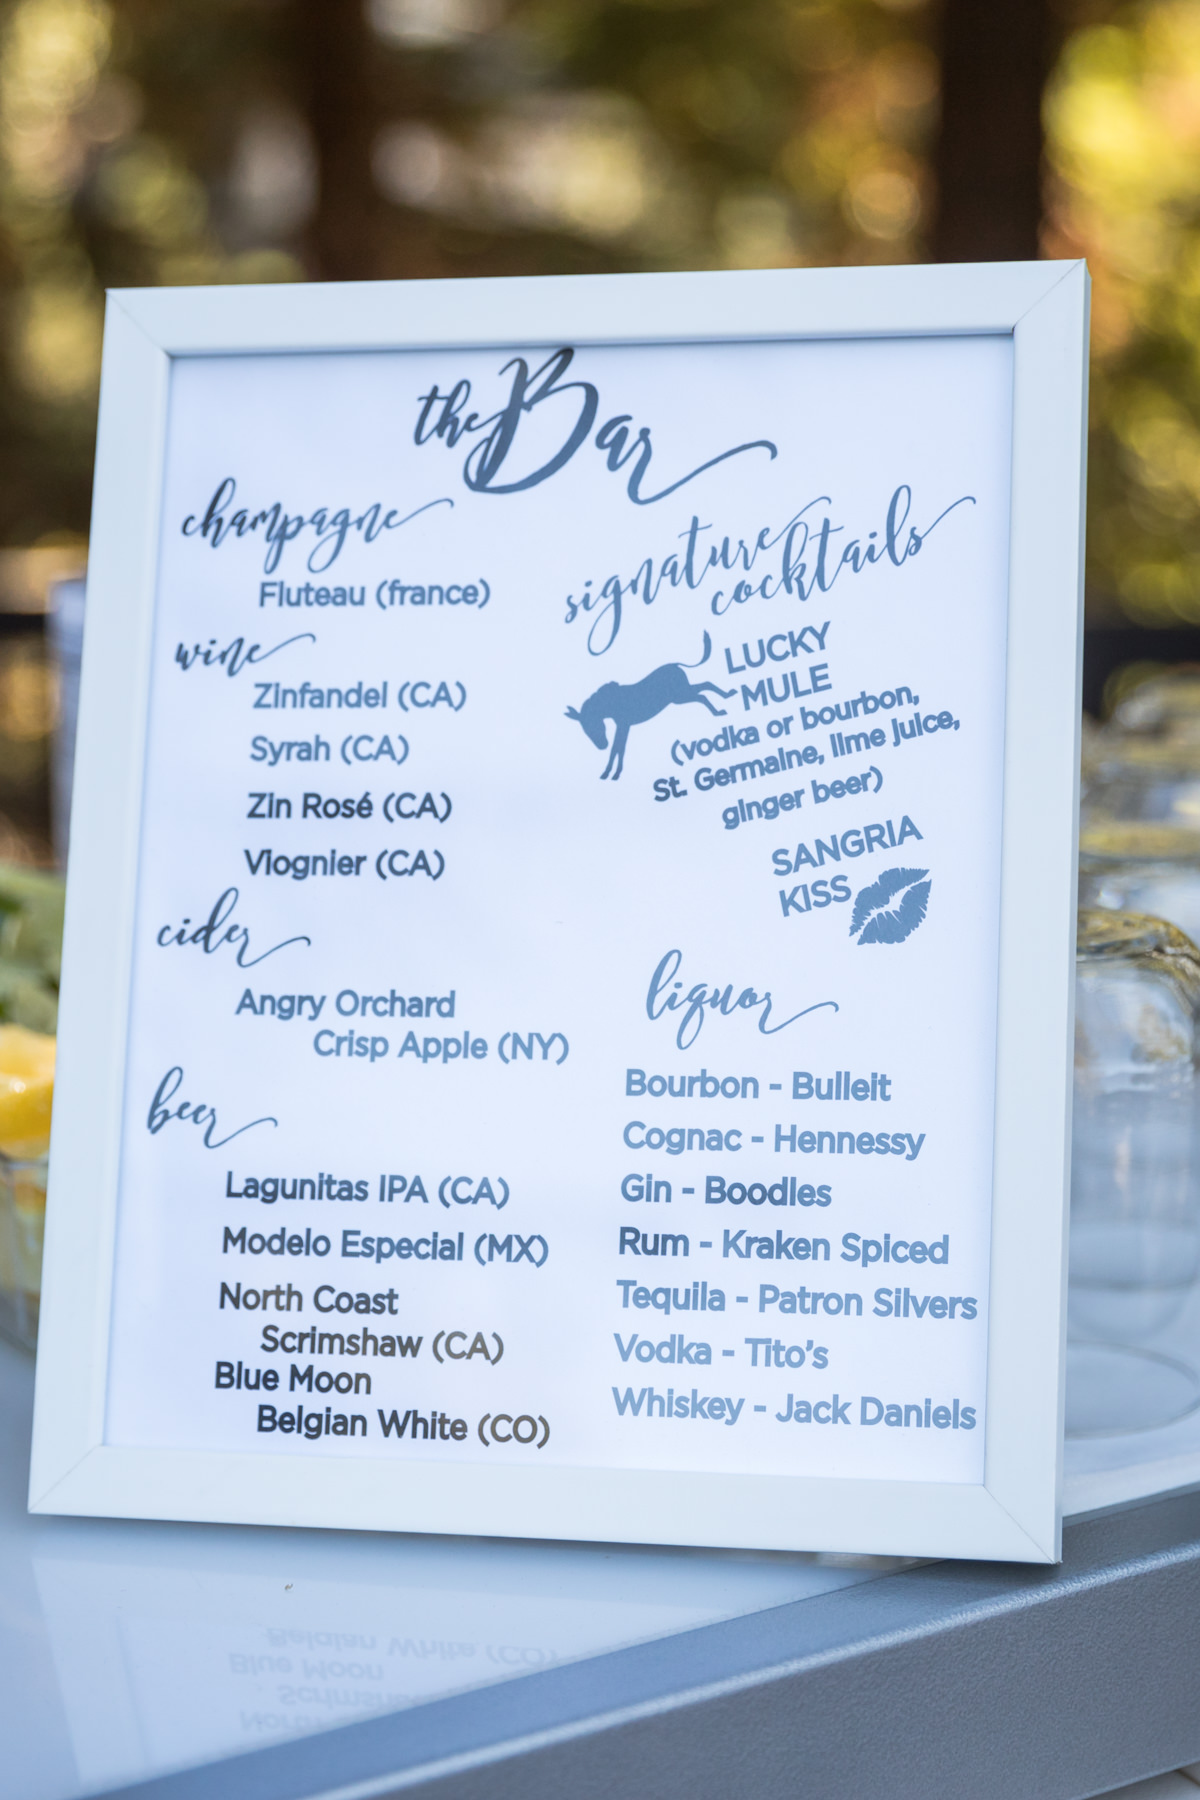 the Bar
champagne
Fluteau (france)
wine
Zinfandel (CA)
Syrah (CA)
Zin Rosé (CA)
Viognier (CA)
cider
Angry Orchard
Crisp Apple (NY)
beer
Lagunitas IPA (CA)
Modelo Especial (MX)
North Coast
Scrimshaw (CA)
Blue Moon
Belgian White (CO)
signature
cocktails
LUCKY
MULE
(vodka or bourbon,
St. Germaine, lime juice,
ginger beer)
SANGRIA
KISS
liquor
Bourbon - Bulleit
Cognac - Hennessy
Gin - Boodles
Rum - Kraken Spiced
Tequila - Patron Silvers
Vodka - Tito's
Whiskey - Jack Daniels